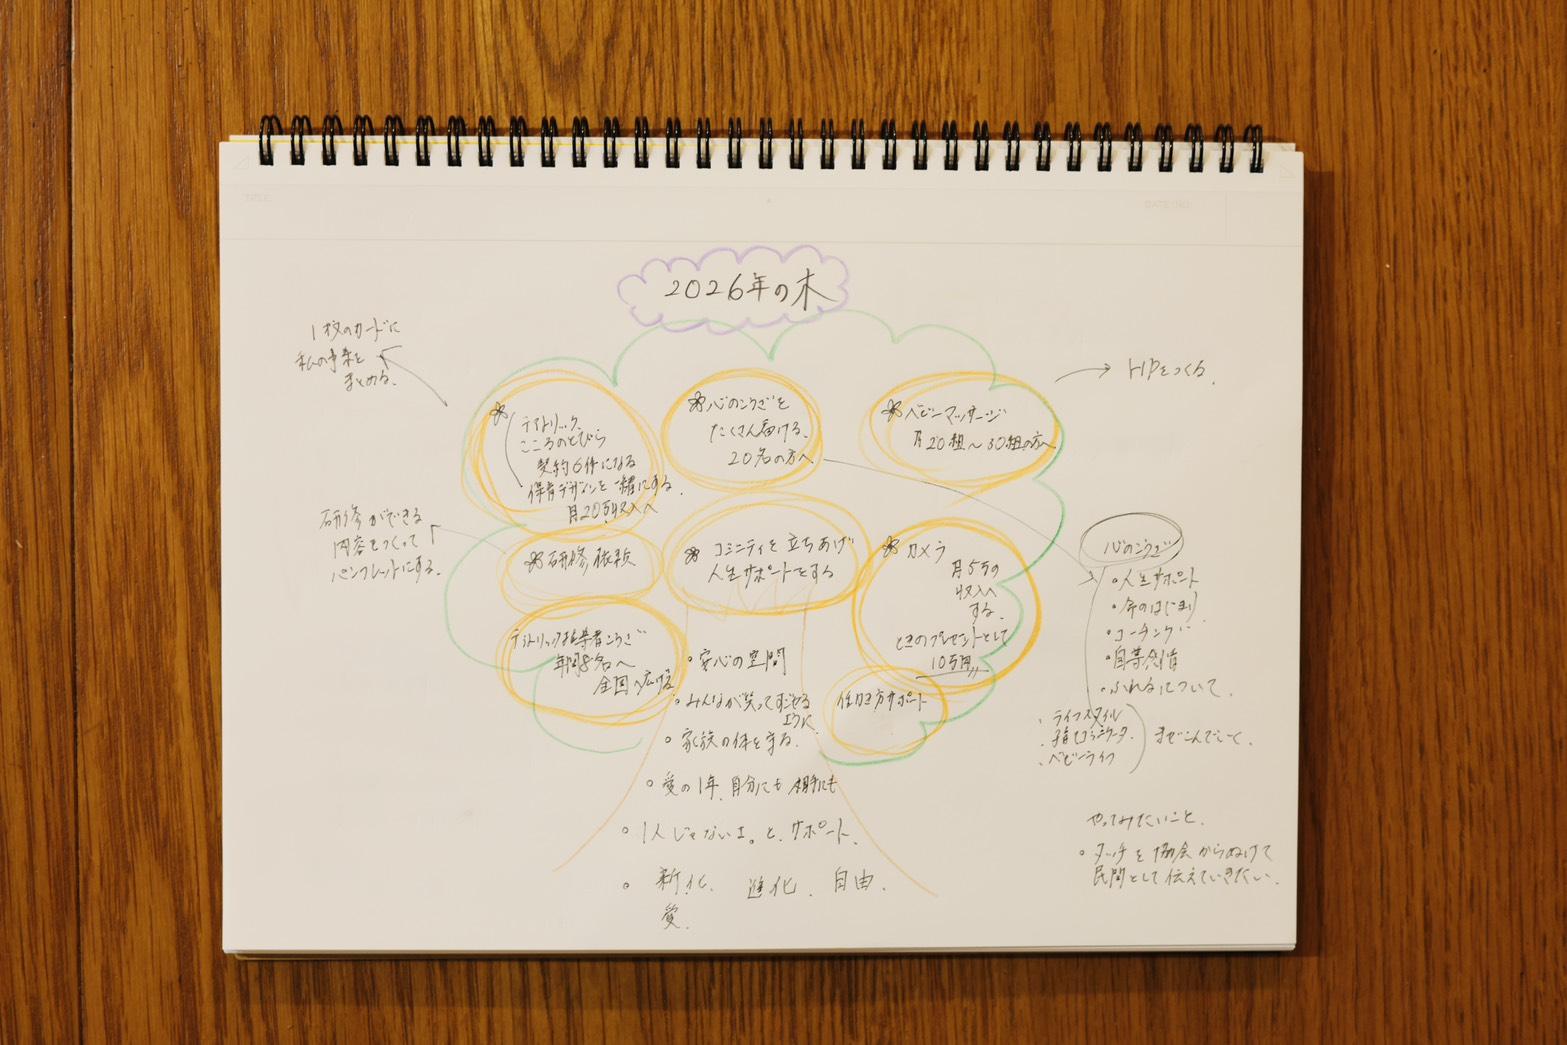 TITLE
DATE/NO.
2026年の木
1枚のカードに
私の事業を
まとめる。
こころのとびら
契約6件になる
保育デザインを一緒にする。
月20万収入へ
心のこうざを
たくさん届ける。
20名の方へ
ベビーマッサージ
月20組〜30組の方へ
HPをつくる。
研修ができる
内容をつくって
パンフレットにする。
研修依頼
コミニティを立ちあげ
人生サポートをする
カメラ
月5万の
収入へ
する。
ときのプレゼントとして
10万円
年間8名へ
全国へ広げる
働き方サポート
心のこうざ
・人生サポート
・命のはじまり
・コーチング
・自尊感情
・ふれるについて。
・ライフスタイル
・ベビーライフ
までこんでいく。
・安心の空間
・みんなが笑ってすごせる
ように
・家族の体を守る。
・愛の1年、自分にも相手にも
・1人じゃないよ。と、サポート、
・新化、進化、自由、
愛、
やってみたいこと、
・タッチを協会からぬけて
民間として伝えていきたい。